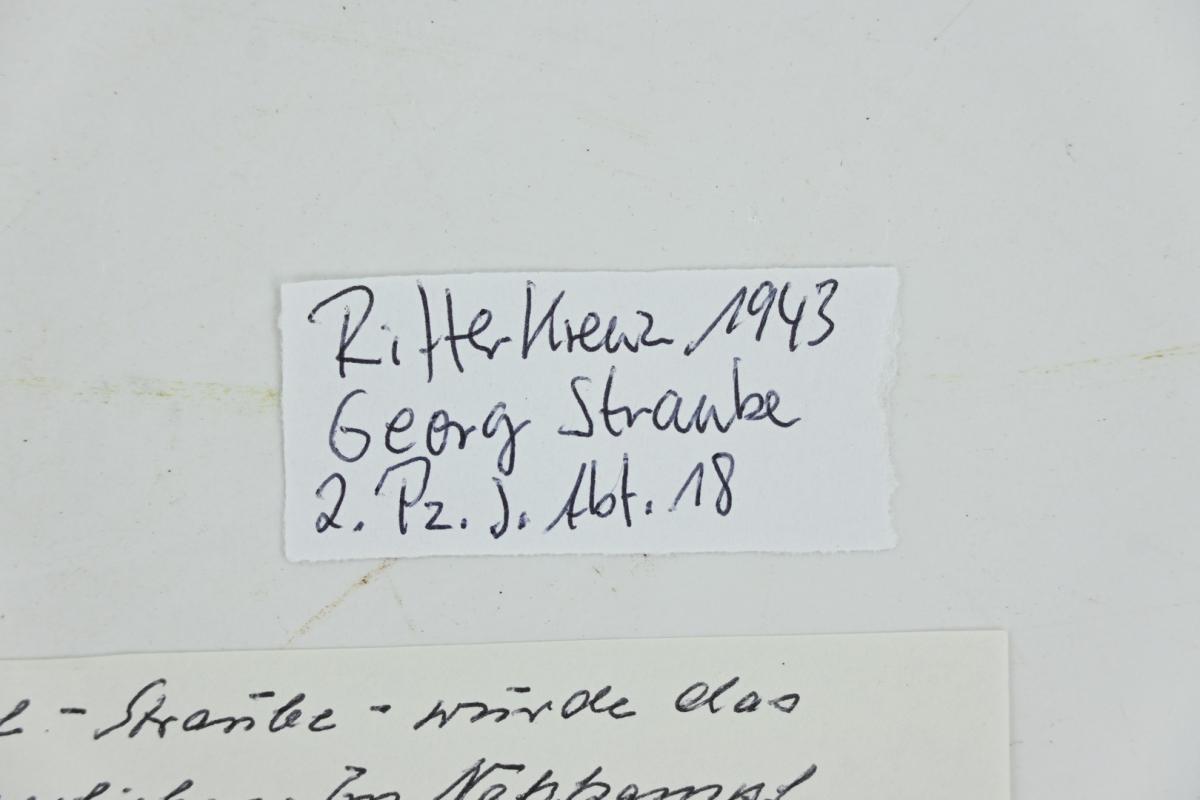 Ritterkreuz 1943
Georg Straube
2. Pz. J. Abt. 18
- Straube - wurde das
Im Nahkampf